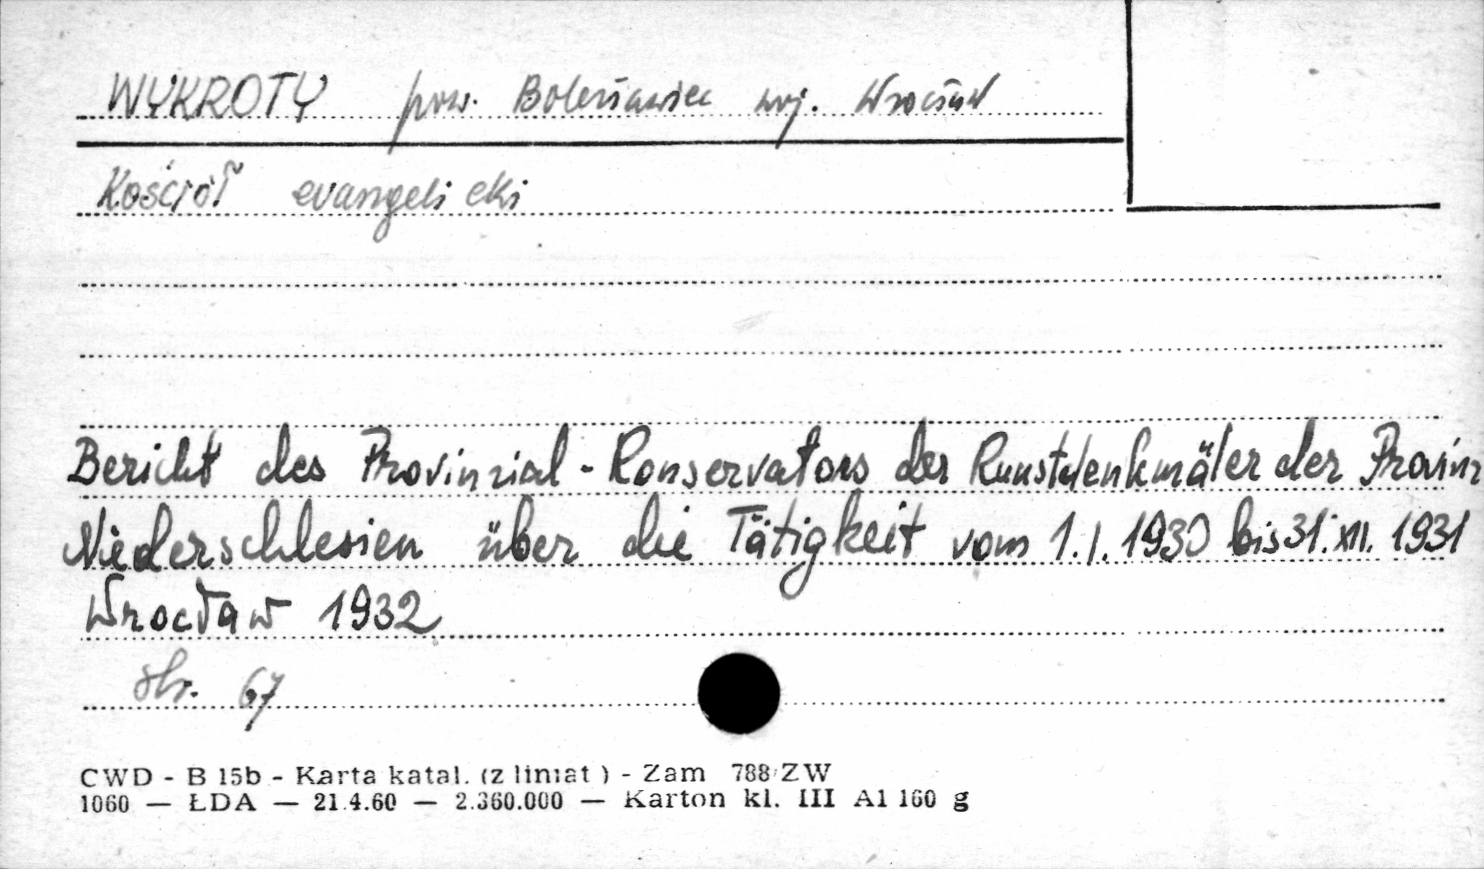 WYKROTY pow. Bolesławiec woj. Wrocław
Kościół evangelicki
Bericht des Provinzial-Konservators der Kunstdenkmäler der Provinz
Niederschlesien über die Tätigkeit vom 1.I.1930 bis 31.XII.1931
Wrocław 1932
str. 67
CWD - B 15b - Karta katal. (z liniat ) - Zam 788/ZW
1060 — ŁDA — 21.4.60 — 2.360.000 — Karton kl. III A1 160 g